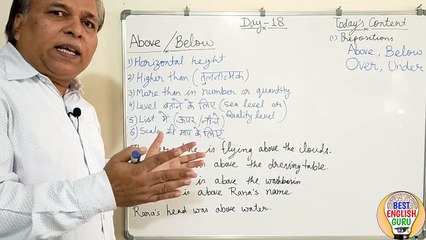 Day-18
Above/Below
1) Horizontal height
2) Higher than (तुलनात्मक)
3) More than in number or quantity
4) Level बताने के लिए (Sea level or
Quality level)
5) List में (ऊपर/नीचे
6) Scale की माप के लिए
is flying above the clouds.
above the dressing table.
is above the washbasin
is above Rana's name
Rana's head was above water.
Today's Content
(1) Prepositions
Above, Below
Over, Under
BEST
ENGLISH
GURU